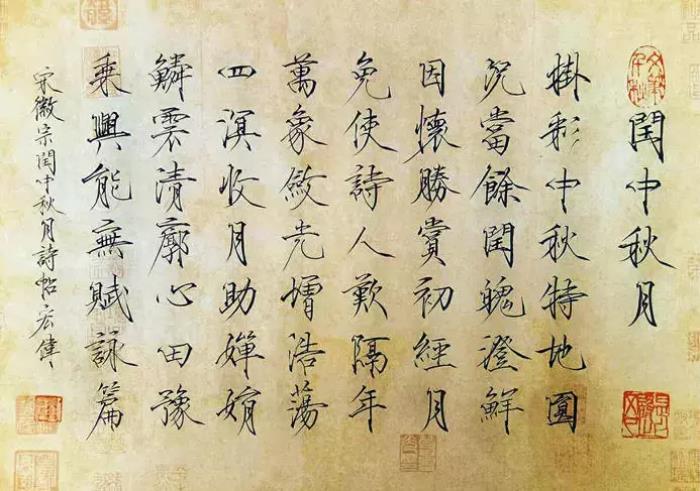 閏中秋月
掛彩中秋特地圓
況當餘閏魄澄鮮
因懷勝賞初經月
免使詩人歎隔年
萬象斂光增浩蕩
四溟收月助嬋娟
鱗雲清廓心田豫
乘興能無賦詠篇
宋徽宗閏中秋月詩帖宏偉